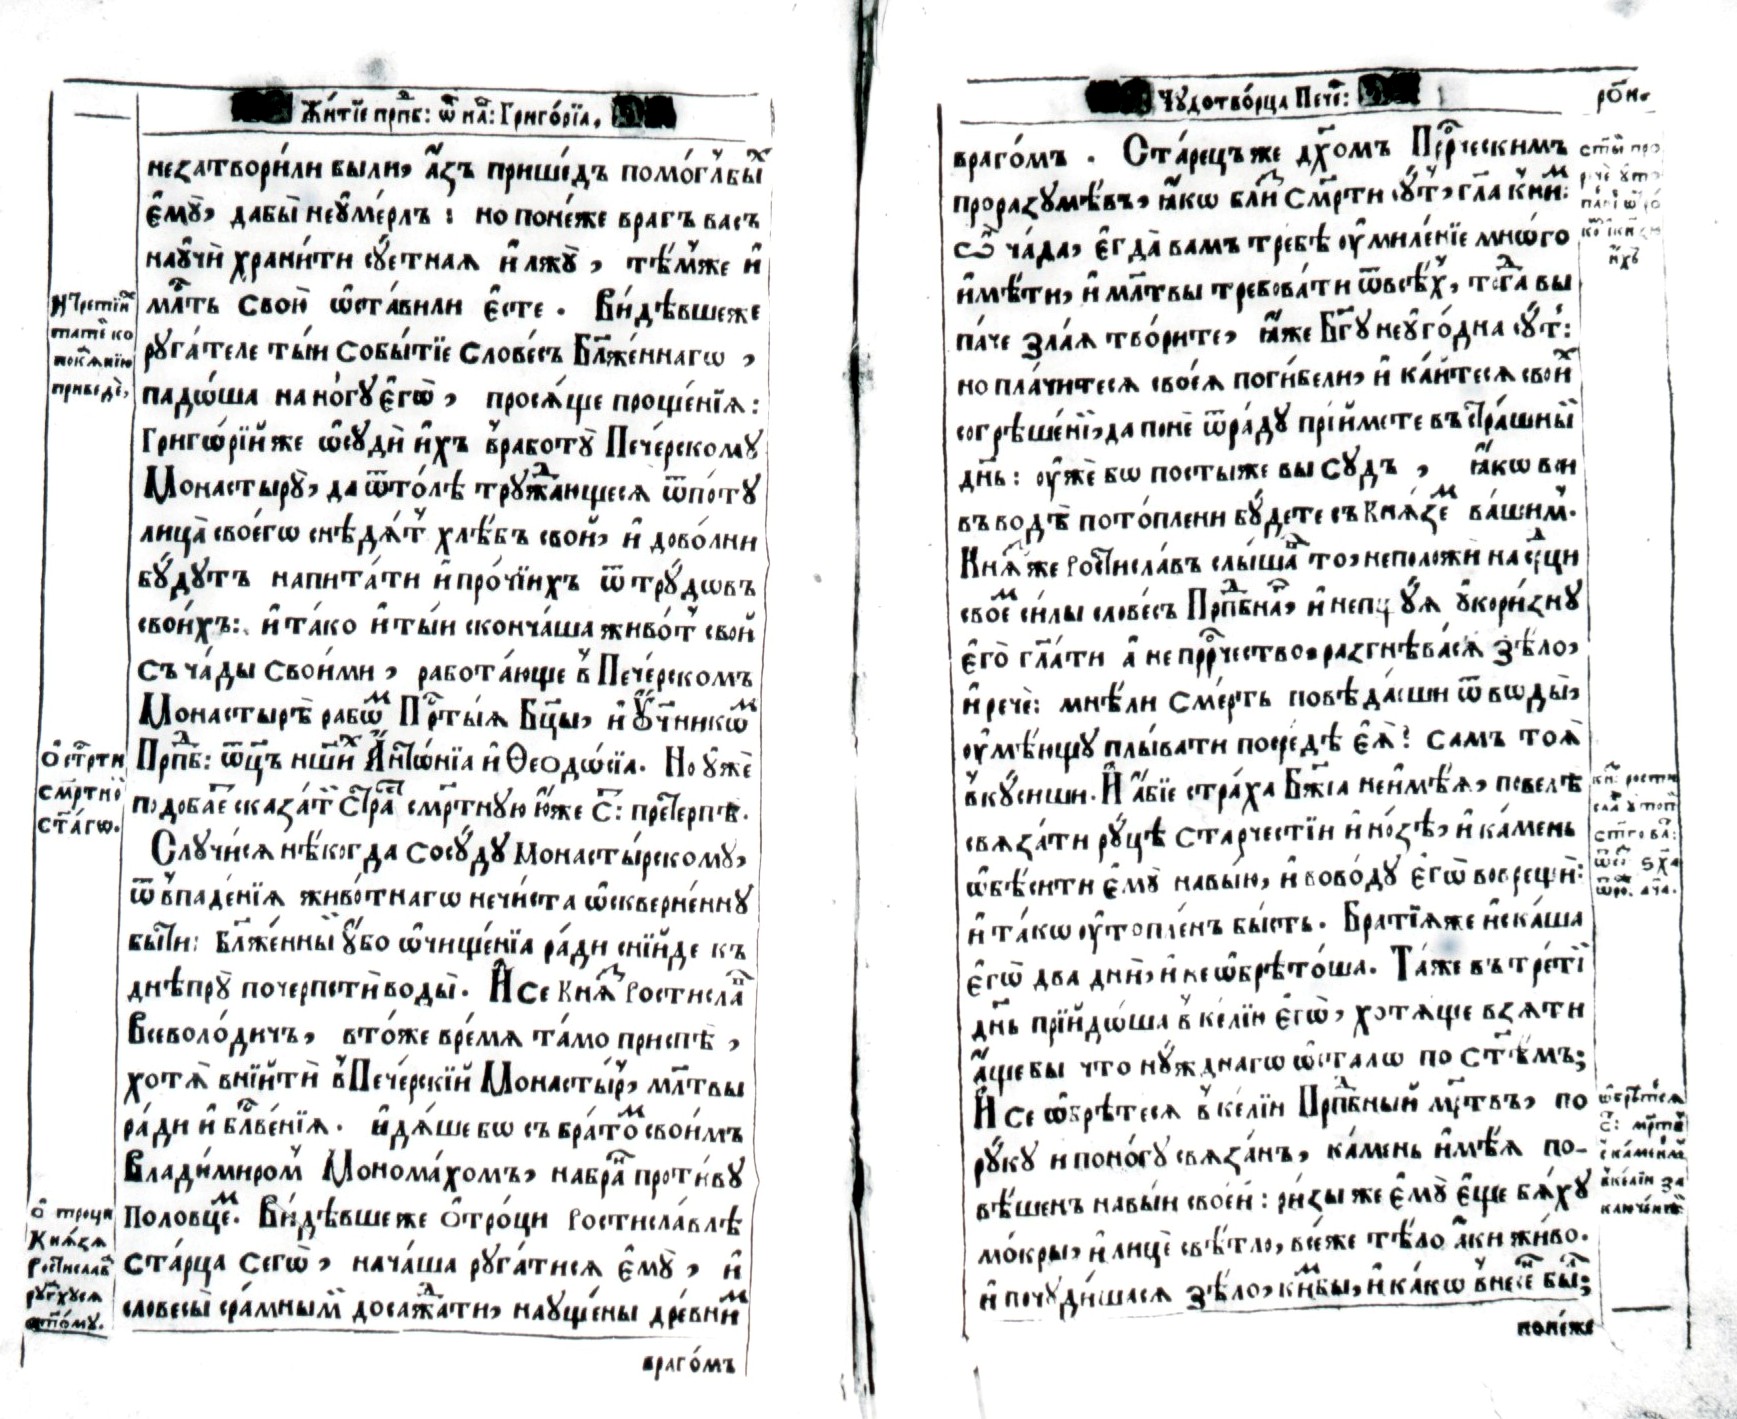 Жи́тїе прпⷣб: ѿ на́: Григо́рїа.
неꙁатвори́ли были, а҆́ꙁъ прише́дъ помо́глъбыⷯ
є҆мꙋ̀, дабы̀ неꙋ҆ме́рлъ: но поне́же врагъ васъ
наꙋ҆чѝ храни́ти сꙋ́етнаѧ и҆ лжꙋ̀, тѣ́мже и҆
млⷭ҇ть свою̀ ѡ҆ста́вили є҆сте. Ви́дѣвшеже
рꙋга́теле ты́и собы́тїе слове́съ Бл҃же́ннагѡ,
падо́ша на но́гꙋ є҆гѡ̀, просѧ́ще проще́нїѧ:
Григѡ́рїйже ѡ҆сꙋдѝ и҆́хъ в̾рабо́тꙋ Пече́рскомꙋ
Монастырꙋ̀, да ѿто́лѣ трꙋжⷣа́ющесѧ ѿпо́тꙋ
лица̀ своегѡ̀ снѣдѧ́тъ хлѣ́бъ свой, и҆ дово́лни
бꙋ́дꙋтъ напита́ти и҆ про́чїихъ ѿ трꙋдѡ́въ
свои́хъ: и҆ та́ко и҆ ты́и сконча́ша живо́тъ свой
съ ча́ды свои́ми, рабо́тающе в̾ Пече́рскомъ
Монастырѣ̀ рабѡⷨ Прⷭ҇ты́ѧ Бц҃ы, и҆ ᲂу҆чн҃икѡⷨ
Прпⷣб: ѿц҃ъ нш҃иⷯ А҆нтѡ́нїа и҆ Ѳеодѡ́сїа. Но ᲂу҆жѐ
подобаⷮе сказа́ть Стра́сть смр҃тнꙋю ю҆́же Ст҃: претерпѣ̀.
Слꙋчи́сѧ нѣ́когда сосꙋ́дꙋ монасты́рскомꙋ,
ѿ в̾паде́нїѧ живо́тнагѡ нечи́ста ѡ҆скверне́ннꙋ
бы́ти: Бл҃же́нны ᲂу҆́бо ѡ҆чище́нїа ра́ди сни́йде къ
днѣпрꙋ̀ почерпстѝ воды̀. И҆ се кнѧⷥ Ростисла́въ
Всеволо́дичъ, вто́же вре́мѧ та́мо приспѣ̀,
хотѧ̀ вни́йтѝ в̾ Пече́рскїй Монасты́рь, мл҃твы
ра́ди и҆ бл҃ве́нїѧ. и҆дѧ́ше бѡ съ бра́тоⷨ свои́мъ
Влади́миромъ Монома́хомъ, на бра́нь проти́вꙋ
половце́ⷨ. Ви́дѣвшеже ѻ҆тро́ци Ростисла́влѣ
ста́рца сегѡ̀, нача́ша рꙋга́тисѧ є҆мꙋ̀, и҆
словесы̀ сра́мныⷨ досажⷣа́ти, наꙋще́ны дре́внⷨи
враго́мъ
И҆ трети́ⷯ
тате́ ко
покаѧ́нїю
приведѐ,
ѻ҆ стрⷭ҇ти
смр҃тно
ст҃а́гѡ.
ѻ҆ троци
кнѧ́ѕѧ
Ростислав
рꙋга́хꙋсѧ
ст҃о́мꙋ.
Чꙋдотво́рца Пече́:
враго́мъ. Ста́рецъже дх҃омъ Прⷪ҇ро́ческимъ
прораꙁꙋмѣ́въ, ꙗ҆́кѡ бли́ⷥ сме́рти сꙋ́тъ, гл҃а к ни́ⷨ:
Ѽ ча́да, є҆гда̀ вамъ тре́бѣ ᲂу҆миле́нїе мно́го
и҆мѣ́ти, и҆ мл҃твы требова́ти ѿвсѣ́хъ, тогⷣа̀ вы
па́че зла́ѧ твори́те, ꙗ҆́же Бг҃ꙋ неꙋ҆го́дна сꙋ́ть:
но пла́читесѧ своеѧ̀ поги́бели, и҆ ка́йтесѧ своиⷯ
согрѣше́нїй, да понѐ ѿра́дꙋ прїи́мете въ стра́шный
дн҃ь: ᲂу҆жѐ бѡ пости́же вы сꙋдъ, ꙗ҆́кѡ вси
въ водѣ̀ пото́плени бꙋ́дете съ Кнѧ́ꙁеⷨ ва́шимъ.
Кнѧⷥже Ростисла́въ слы́шаⷡ то, неположѝ на срⷣци
своеⷨ си́лы слове́съ Прпⷣбна, и҆ непщꙋ́ѧ ᲂу҆кори́ꙁнꙋ
є҆го̀ гл҃ати а҆ не прⷪ҇ро́чество, раꙁгнѣ́васѧ ѕѣ́ло,
и҆ речѐ: мнѣ́ли сме́рть повѣ́даеши ѿ воды̀,
ᲂу҆мѣ́ющꙋ пла́вати посредѣ̀ є҆ѧ̀? са́мъ тоѧ̀
в̾кꙋ́сиши. И҆ а҆́бїе стра́ха Бж҃їа неи҆мѣ́ѧ, повелѣ̀
свѧꙁа́ти рꙋ́цѣ старчестїи и҆ но́зѣ, и҆ ка́мень
ѡ҆бѣ́сити є҆мꙋ̀ на вы́ю, и҆ во во́дꙋ є҆гѡ̀ вове́рещѝ:
и҆ та́кѡ ᲂу҆топле́нъ бы́сть. Бра́тїѧже и҆ска́ша
є҆гѡ̀ два дни̑, и҆ не ѡ҆брѣто́ша. Та́же въ тре́тїй
дн҃ь прїидо́ша в̾ ке́лїю є҆гѡ̀, хотѧ́ще вꙁѧ́ти
а҆́щебы что нꙋ́жднагѡ ѡ҆стало по ст҃ѣмъ;
И҆ се ѡ҆брѣ́тесѧ в̾ ке́лїи Прпⷣбный мр҃твъ, по
рꙋ́кꙋ и по но́гꙋ свѧ́ꙁанъ, ка́мень и҆мѣ́ѧ по-
вѣ́шенъ на вы́и свое́й: ри́ꙁы же є҆мꙋ̀ є҆ще бѧ́хꙋ
мо́кры, и҆ лицѐ свѣ́тло, все́же тѣ́ло а҆́ки жи́во.
и҆ почꙋди́шасѧ ѕѣ́ло, ки́ⷨбы, и҆ ка́кѡ в̾несеⷩ бы́лъ;
поне́же
ст҃ы́ про
рече́ ᲂу҆то
кн҃: рости
сла́ ᲂу҆топи
ст҃го
ѡ҆брѣ́тесѧ
ст҃: мр҃тв
с ка́менⷨ
в̾ ке́лїи за
ключе́ннѣ